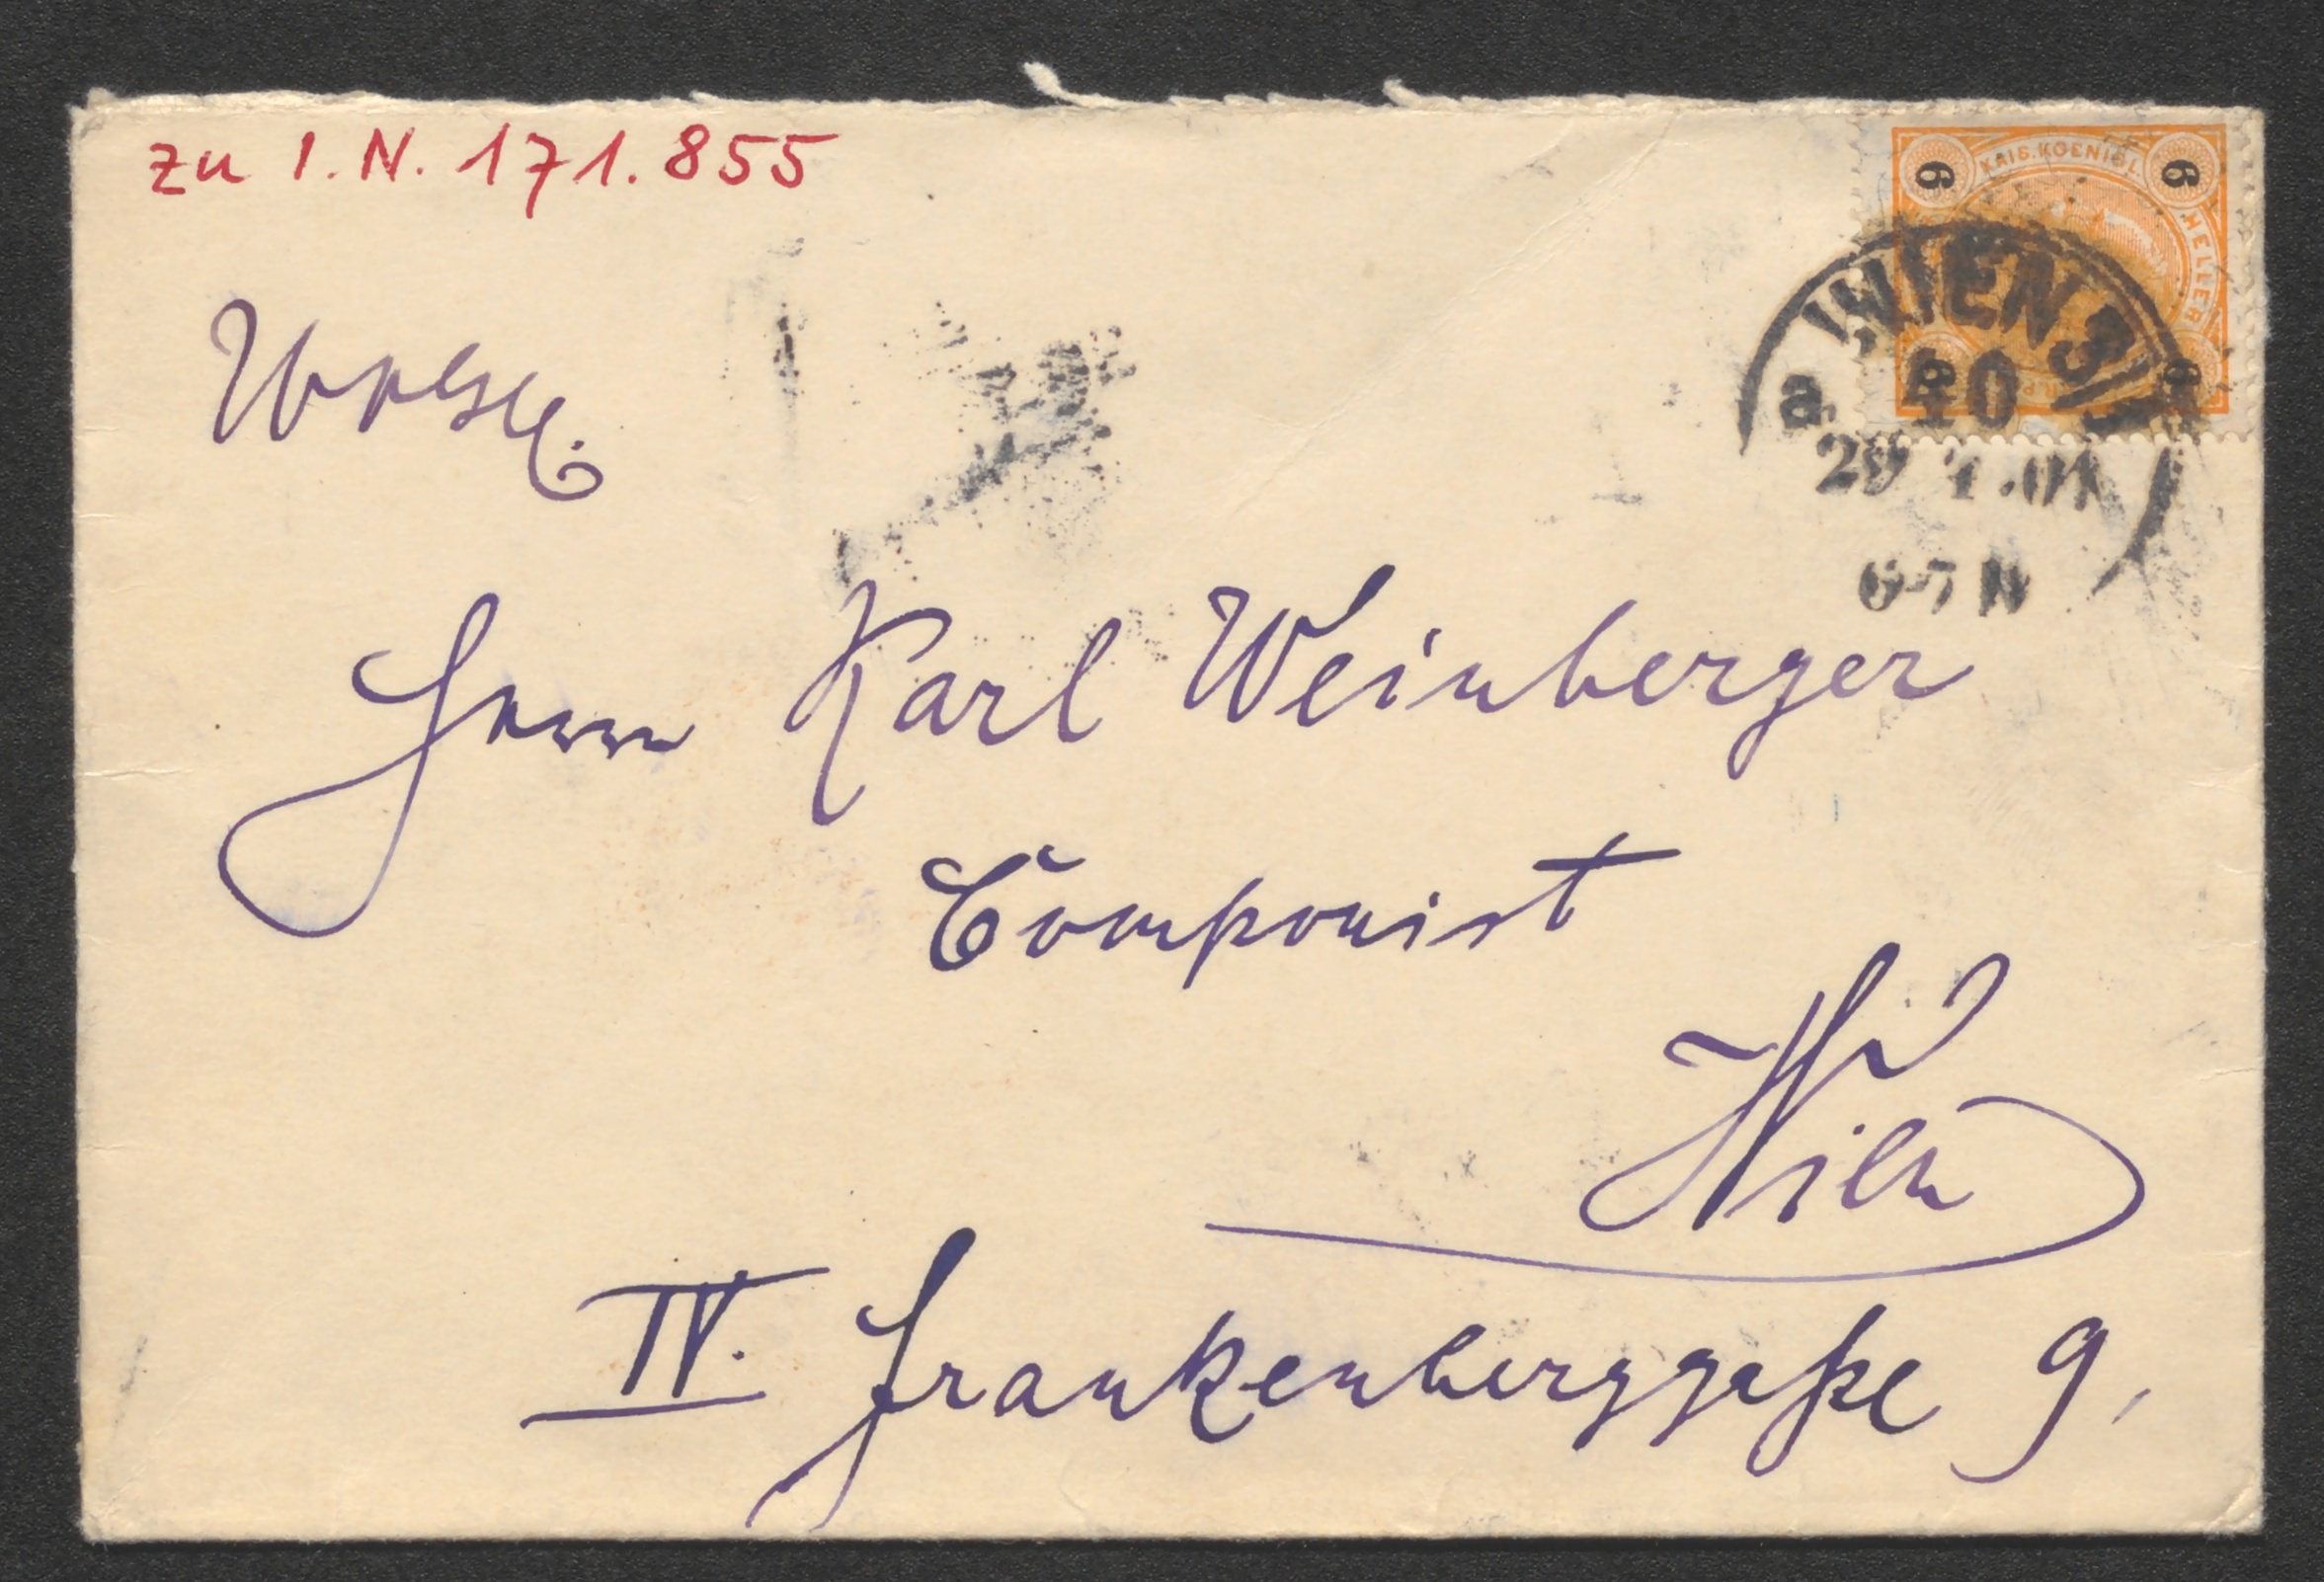 zu I.N. 171.855
KAIS. KOENIGL.
6 6
HELLER
WIEN 3/
a. 40
6-7 N
Herrn Karl Weinberger
Componist
Wien
IV. Frankenberggaße 9,